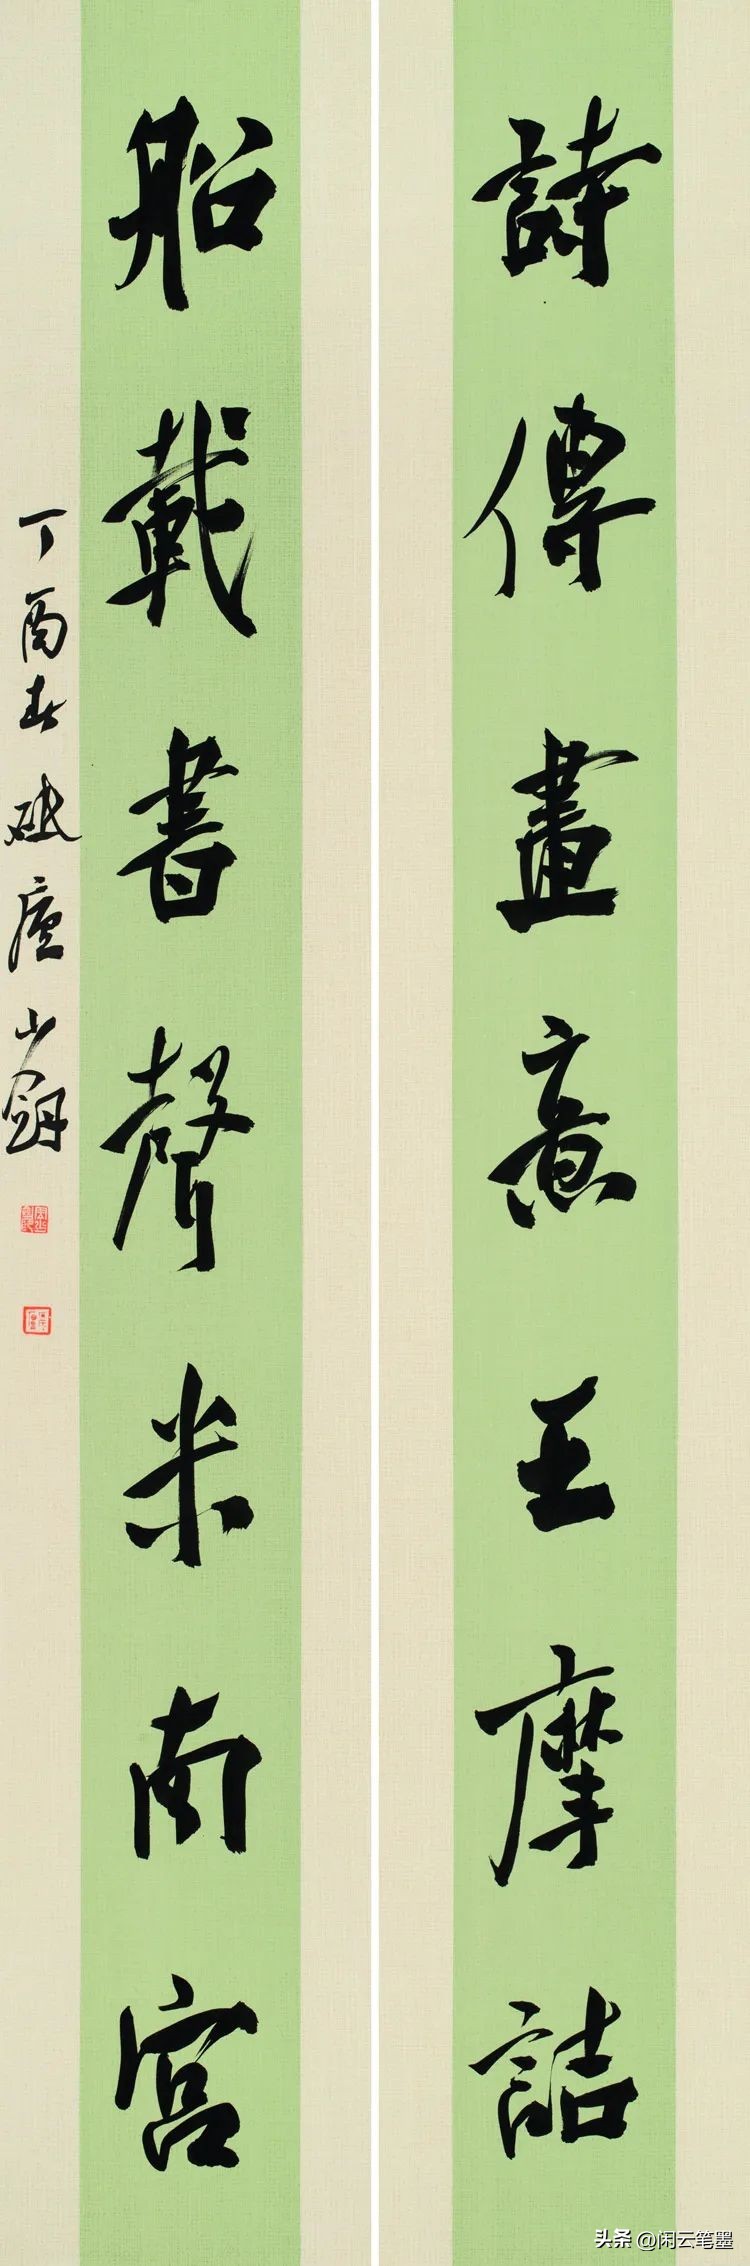 詩傳畫意王摩詰
船載書聲米南宮
丁酉春 廬
头条 @闲云笔墨